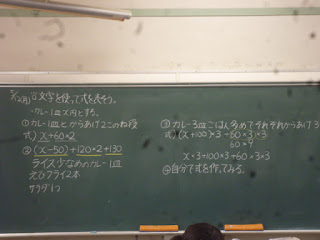 文字を使って式を表そう。
・カレー1皿 x円とする。
①カレー1皿とからあげ2このね段
式) x+60×2
② (x-50)+120×2+130
ライス少なめのカレー1皿
えびフライ2本
サラダ1つ
③カレー3皿ごはん多めでそれぞれからあげ3
式) (x+100)×3+60×3×3
60×9
x×3+100×3+60×3×3
④自分で式を作ってみる。